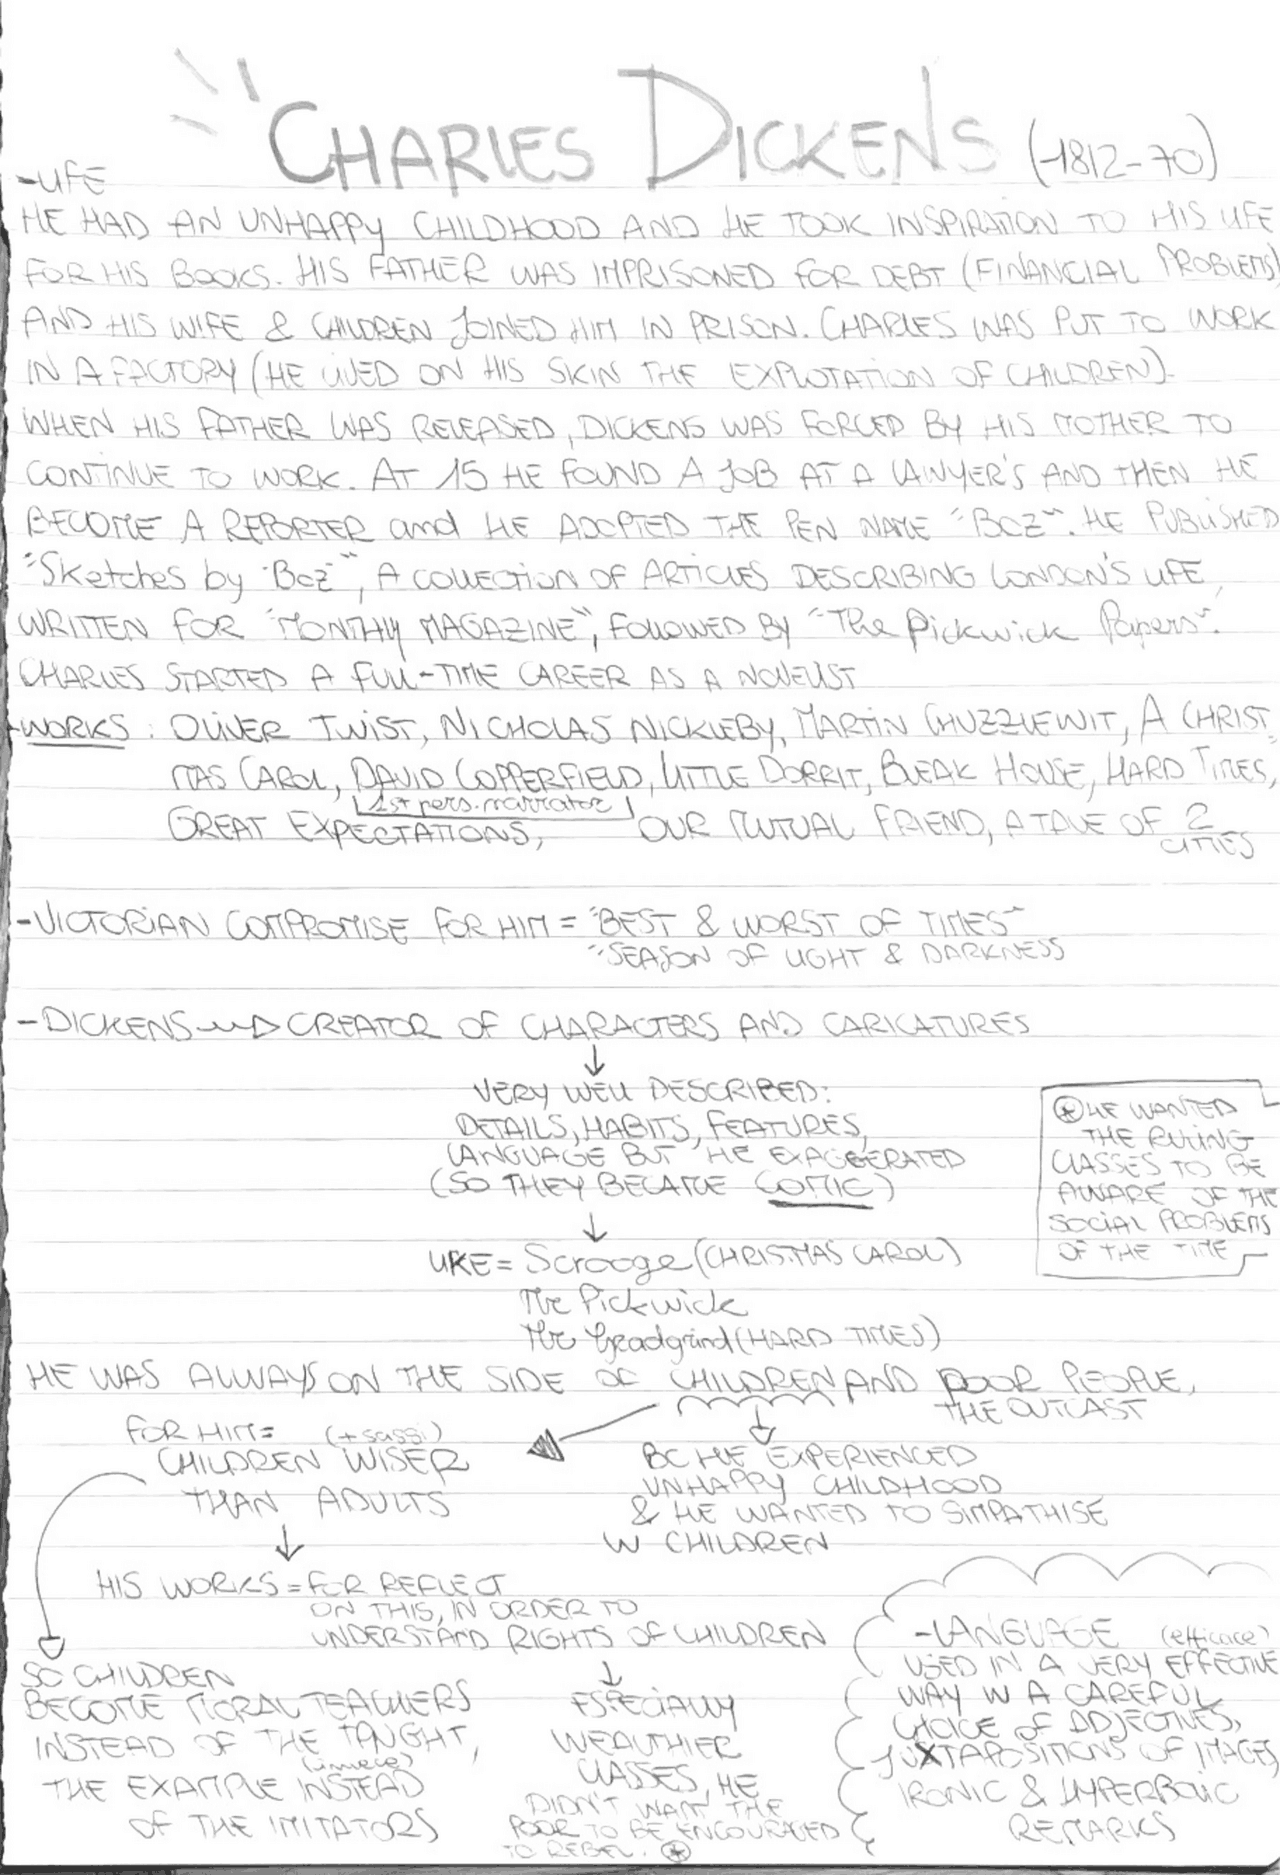 CHARLES DICKENS (1812-70)
-LIFE
HE HAD AN UNHAPPY CHILDHOOD AND HE TOOK INSPIRATION TO HIS LIFE
FOR HIS BOOKS. HIS FATHER WAS IMPRISONED FOR DEBT (FINANCIAL PROBLEMS)
AND HIS WIFE & CHILDREN JOINED HIM IN PRISON. CHARLES WAS PUT TO WORK
IN A FACTORY (HE LIVED ON HIS SKIN THE EXPLOTATION OF CHILDREN).
WHEN HIS FATHER WAS RELEASED, DICKENS WAS FORCED BY HIS MOTHER TO
CONTINUE TO WORK. AT 15 HE FOUND A JOB AT A LAWYER'S AND THEN HE
BECOME A REPORTER and HE ADOPTED THE PEN NAME "BOZ". HE PUBLISHED
"Sketches by "Boz"", A COLLECTION OF ARTICLES DESCRIBING LONDON'S LIFE,
WRITTEN FOR "MONTHLY MAGAZINE", FOLLOWED BY "The Pickwick Papers".
CHARLES STARTED A FULL-TIME CAREER AS A NOVELIST
-WORKS: OLIVER TWIST, NICHOLAS NICKLEBY, MARTIN CHUZZLEWIT, A CHRIST
MAS CAROL, DAVID COPPERFIELD, LITTLE DORRIT, BLEAK HOUSE, HARD TIMES,
1st pers. narrator
GREAT EXPECTATIONS, OUR MUTUAL FRIEND, A TALE OF 2
CITIES
-VICTORIAN COMPROMISE FOR HIM = "BEST & WORST OF TIMES"
"SEASON OF LIGHT & DARKNESS
-DICKENS → CREATOR OF CHARACTERS AND CARICATURES
↓
VERY WELL DESCRIBED:
DETAILS, HABITS, FEATURES,
LANGUAGE BUT HE EXAGGERATED
(SO THEY BECAME COMIC)
↓
LIKE = Scrooge (CHRISTMAS CAROL)
The Pickwick
The Greadgrind (HARD TIMES)
⊛ HE WANTED
THE RULING
CLASSES TO BE
AWARE OF THE
SOCIAL PROBLEMS
OF THE TIME
HE WAS ALWAYS ON THE SIDE OF CHILDREN AND POOR PEOPLE,
THE OUTCAST
FOR HIM = (+ saggi)
CHILDREN WISER
THAN ADULTS
BC HE EXPERIENCED
UNHAPPY CHILDHOOD
& HE WANTED TO SIMPATHISE
W CHILDREN
HIS WORKS = FOR REFLECT
ON THIS, IN ORDER TO
UNDERSTAND RIGHTS OF CHILDREN
SO CHILDREN
BECOME MORAL TEACHERS
INSTEAD OF THE TAUGHT,
(invece)
THE EXAMPLE INSTEAD
OF THE IMITATORS
↓
ESPECIALLY
WEALTHIER
CLASSES, HE
DIDN'T WANT THE
POOR TO BE ENCOURAGED
TO REBEL. ⊛
-LANGUAGE (efficace)
USED IN A VERY EFFECTIVE
WAY W A CAREFUL
CHOICE OF ADJECTIVES,
JUXTAPOSITIONS OF IMAGES,
IRONIC & HYPERBOLIC
REMARKS